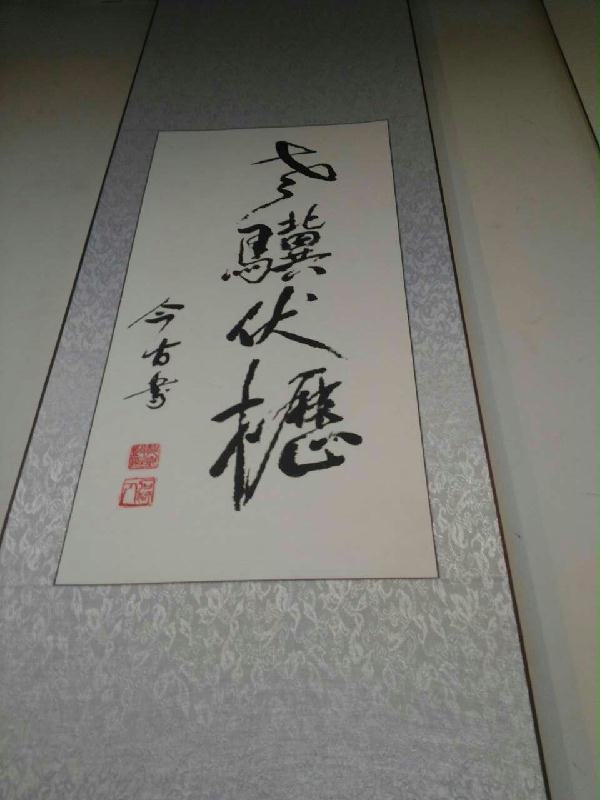 老驥伏櫪
今古書